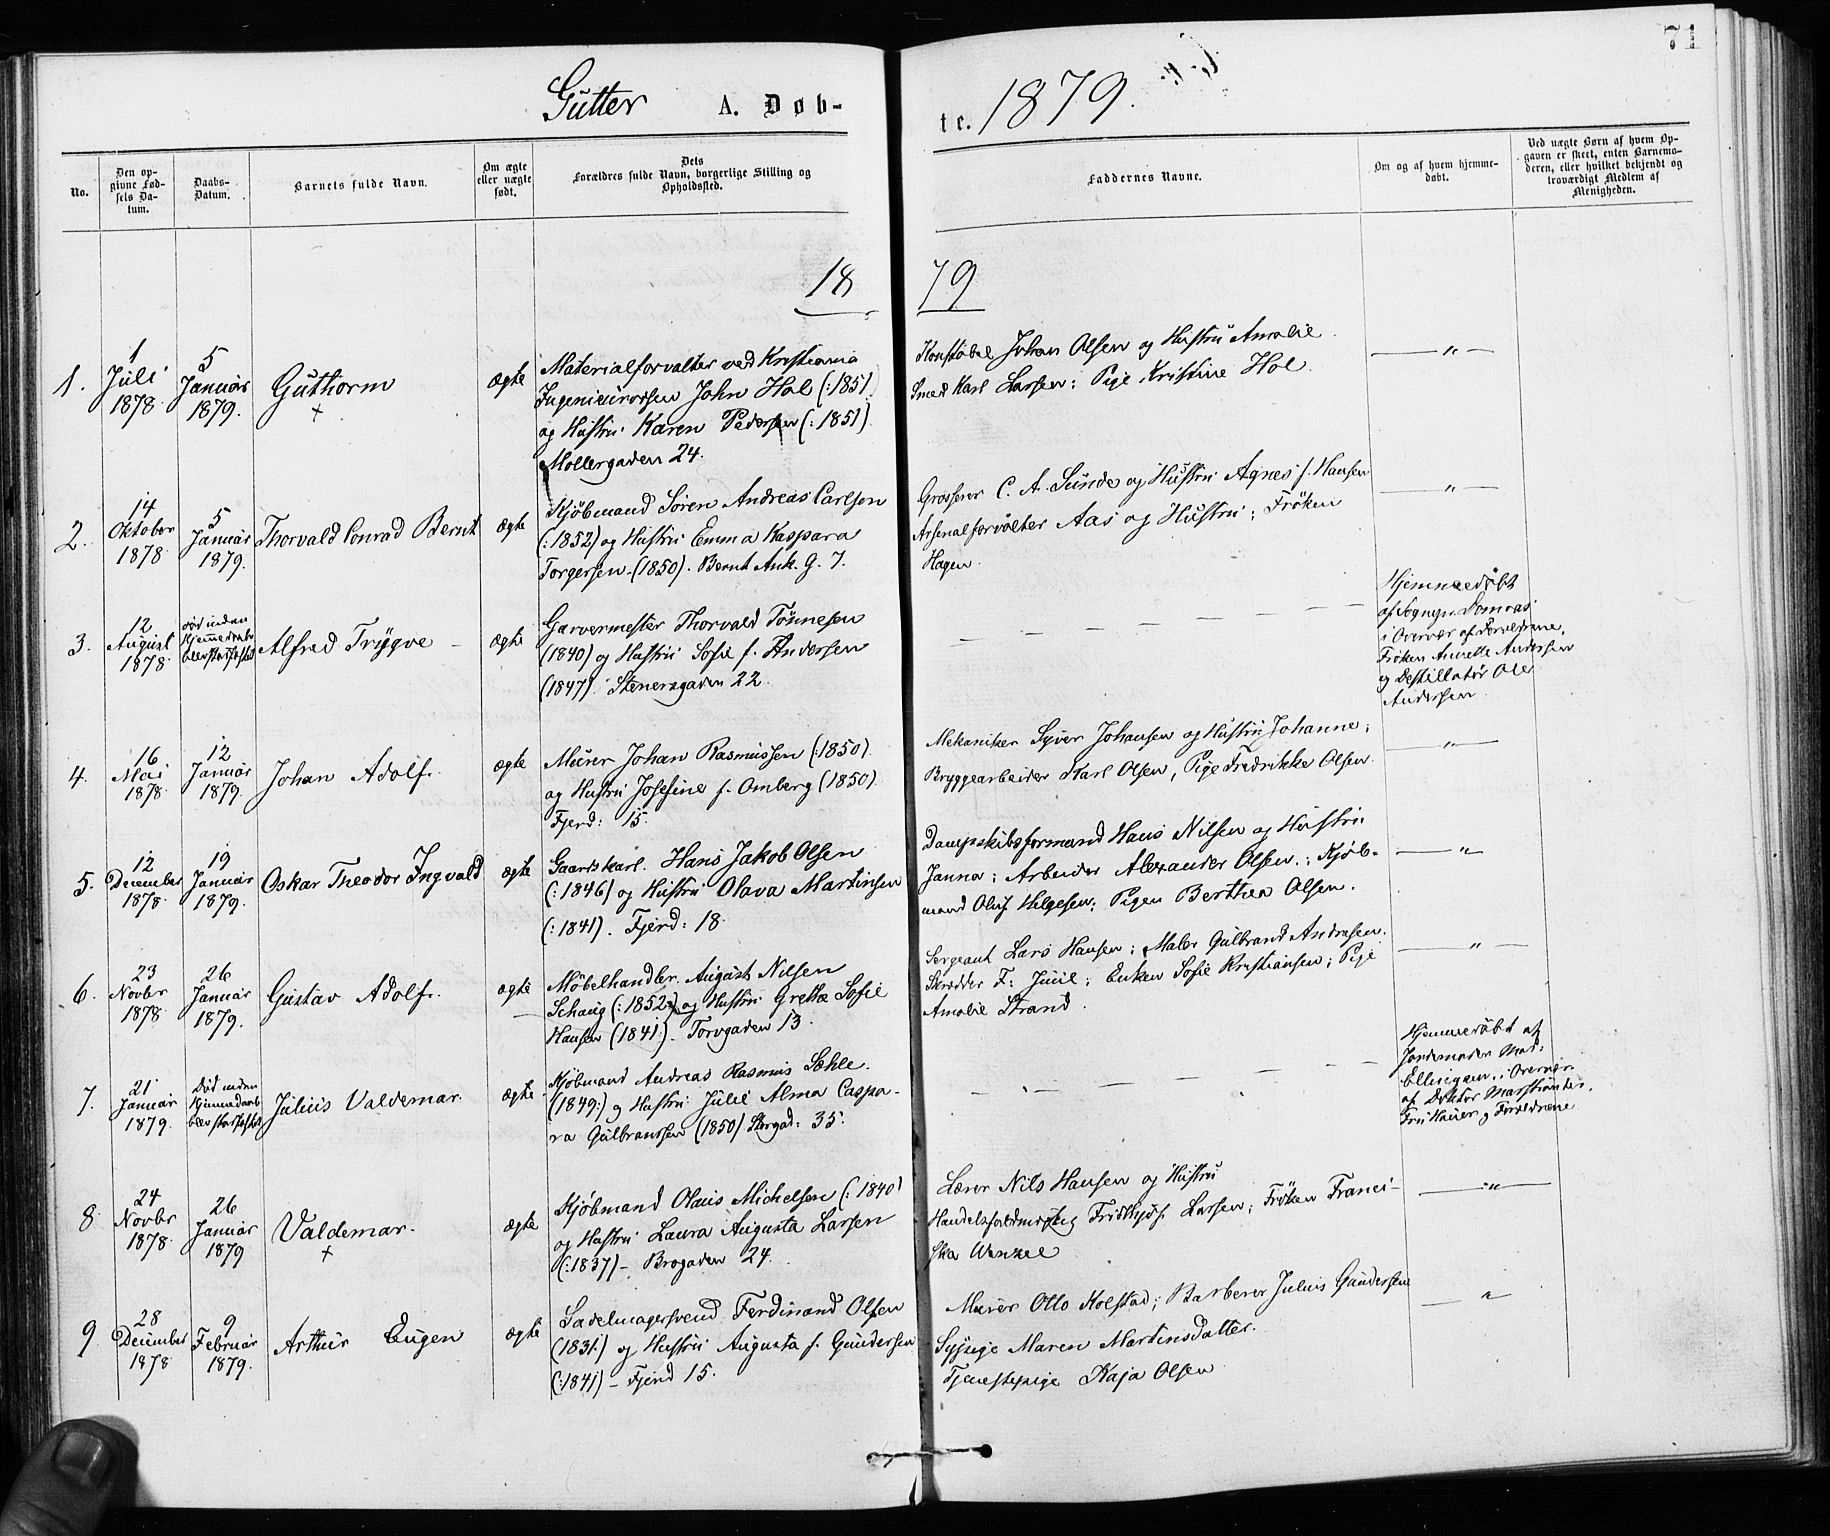 71
Gutter A. Døb-
te. 1879.
No.
Den op-
givne Fød-
sels Da-
tum.
Daabs-
Datum.
Barnets fulde Navn.
Om ægte
eller uægte
født.
Dets
Forældres fulde Navn, borgerlige Stilling og
Opholdssted.
Faddernes Navne.
Om og af hvem hjemme-
døbt.
Ved uægte Børn af hvem Op-
gaven er skeet, enten Barnemo-
deren, eller hvilket bekjendt og
troværdigt Medlem af
Menigheden.
18 79
1.
1
Juli
1878.
5
Januar
1879.
Guthorm
+
ægte
Materialforvalter ved Kristiania
John Hol (:1851)
og Hustru Karen Pedersen (:1851)
Møllergaden 24.
Konstabel Johan Olsen og Hustru Amalie
Smed Karl Larsen; Pige Kristine Hol.
— " —
2.
14
Oktober
1878.
5
Januar
1879.
Thorvald Conrad Bernt
ægte
Kjøbmand Søren Andreas Carlsen
(:1852) og Hustru Emma Kaspara
Torgersen (1850). Bernt Ank. G. 7.
Grosserer C. A. Sunde og Hustru Agnes f. Hansen
Arsenalforvalter Aas og Hustru; Frøken
Hagen.
— " —
3.
12
August
1878.
død inden
Hjemmedaab
blev stadfæstet
Alfred Trygve
ægte
Garvermester Thorvald Tønnesen
(1840) og Hustru Sofie f. Andersen
(1847). Stenersgaden 22.
— — — — —
Hjemmedøbt
i Overvær af Forældrene,
Frøken Annette Andersen
og Destillatør Ole
Andersen.
4.
16
Mai
1878.
12
Januar
1879.
Johan Adolf.
ægte
Murer Johan Rasmussen (:1850)
og Hustru Josefine f. Omberg (1850).
Fjerd: 15.
Mekaniker Syver Johansen og Hustru Johanne;
Bryggearbeider Karl Olsen, Pige Fredrikke Olsen.
— " —
5.
12
December
1878.
19
Januar
1879.
Oskar Theodor Ingvald
ægte
Gaardskarl. Hans Jakob Olsen
(:1846) og Hustru Olava Martinsen
(:1841). Fjerd: 18.
Dampskibsformand Hans Nilsen og Hustru
Janna; Arbeider Alexander Olsen.; Kjøb-
mand Oluf Helgesen; Pigen Berthea Olsen.
— " —
6.
23
Novbr
1878.
26
Januar
1879.
Gustav Adolf.
ægte
—
Møbelhandler. August Nilsen
Schaug (:1852:) og Hustru Grethe Sofie
Hansen (1841:). Torvgaden 13.
Sergeant Lars Hansen; Maler Gulbrand Andresen.
Skrædder F: Juul; Enken Sofie Kristiansen; Pige
Amalie Strand.
— " —
7.
21
Januar
1879.
Død inden
Hjemmedaab
blev stadfæstet
Julius Valdemar.
ægte
Kjøbmand Andreas Rasmus Sæhle.
(1849:) og Hustru Julie Alma Caspa-
ra Gulbranssen (1850) Storgad: 35.
— — — — —
Hjemmedøbt af
Jordemoder Mad.
Ellingsen, i Overvær
af Doktor
Fru Hauer og Forældrene.
8.
24
Novbr
1878.
26
Januar
1879
Valdemar.
+
ægte
Kjøbmand Olaus Michelsen (:1840)
og Hustru Laura Augusta Larsen
(:1837) – Brogaden 24.
Lærer Nils Hansen og Hustru
Fridthjof Larsen; Frøken Franci-
ska Wenzel
— " —
9.
28
December
1878
9
Februar
1879.
Arthur Eugen
ægte
Sadelmagersvend Ferdinand Olsen
(1831.) og Hustru Augusta f. Gundersen
(:1841) – Fjerd 15.
Murer Otto Kolstad; Barberer Julius Gundersen
Sypige Maren Martinsdatter.
Tjenestepige Kaja Olsen
— " —